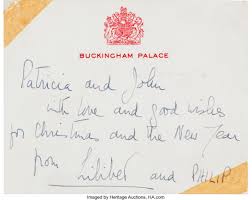 BUCKINGHAM PALACE
Patricia and John
with love and good wishes
for Christmas and the New Year
from Lilibet and PHILIP
Imaged by Heritage Auctions, HA.com